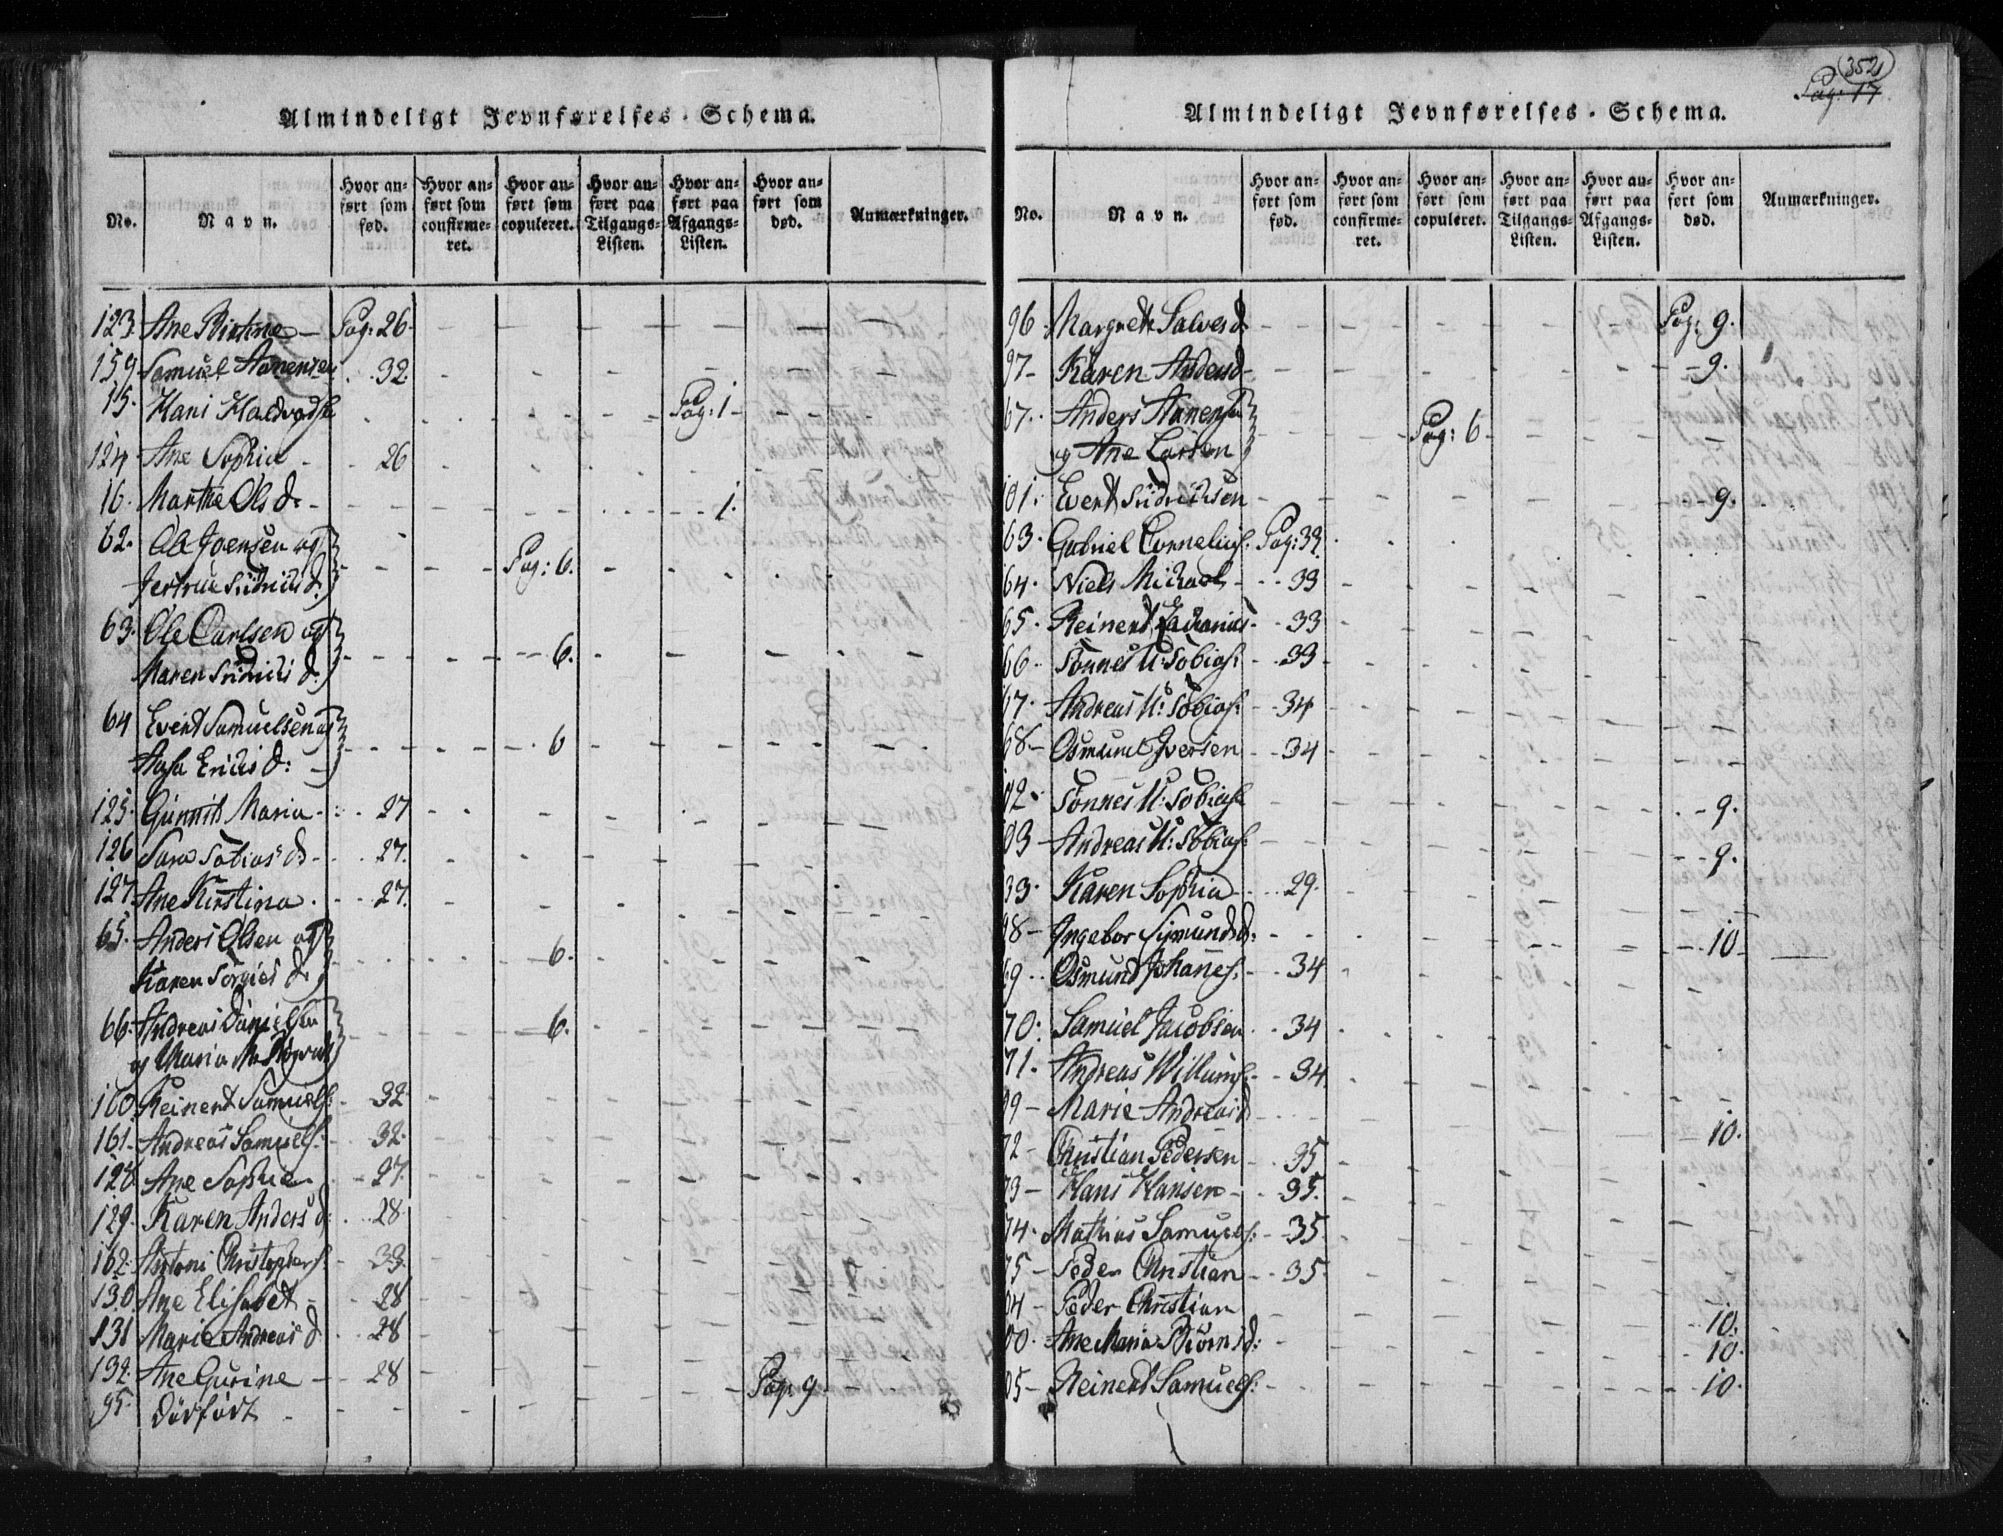 (352)
Pag: 17
Almindeligt Jevnførelses-Schema.
No. Navn. Hvor anført som fød. Hvor anført som confirmeret. Hvor anført som copuleret. Hvor anført paa Tilgangs-Listen. Hvor anført paa Afgangs-Listen. Hvor anført som død. Anmærkninger.
123. Ane Pag: 26
159. Samuel Aanensen 32
15. Hans Pag: 1
124 Ane Sophia 26
16. Marthe Ols d. 1.
62. Ole Joensen og
d: Pag: 6.
63. Ole Carlsen og
Maren d. 6.
64 Evert Samuelsen og
Aasa Erichs d: 6
125. Gunnild Maria 27
126 Sara Tobias d 27.
127. Ane Kirstina 27.
65. Anders Olsen og
Karen d. 6.
66. Andreas Danielsen
og Maria M. 6.
160. Reinert Samuels: 32
161. Andreas Samuels: 32.
128 Ane Sophia 27.
129. Karen Anders d: 28
162. Antoni Christophers: 33.
130. Ane Elisabet 28
131 Marie Andreas d. 28
132. Ane Gurine 28
95. Dødfødt Pag. 9
Almindeligt Jevnførelses-Schema.
No. Navn. Hvor anført som fød. Hvor anført som confirmeret. Hvor anført som copuleret. Hvor anført paa Tilgangs-Listen. Hvor anført paa Afgangs-Listen. Hvor anført som død. Anmærkninger.
96. Margrete Salves d. Pag: 9.
97 Karen Anders d 9.
67. Anders Aanensen
og Ane Larsen Pag: 6
101. Evert Fridrichsen 9.
63. Gabriel Cornelius: Pag: 33.
64. Niels Michael 33
65. Reinert Zacharias 33
66. Tønnes U: Tobias: 33
67. Andreas U: Tobias: 34
68 Osmund Iversen 34
02. Tønnes U: Tobias: 9.
03 Andreas U: Tobias: 9.
33. Karen Sophia 29.
98 Ingebor Sigmunds d: 10
69. Osmund Johannes: 34
70. Samuel Jacobsen 34
71. Andreas Willums: 34
99 Marie Andreas d 10.
72 Christian Pedersen 35
73 Hans Hansen 35.
74. Mathias Samuels: 35
75 Peder Christian 35.
04 Peder Christian 10.
00. Ane Maria Biørns d: 10.
05 Reinert Samuels: 10.